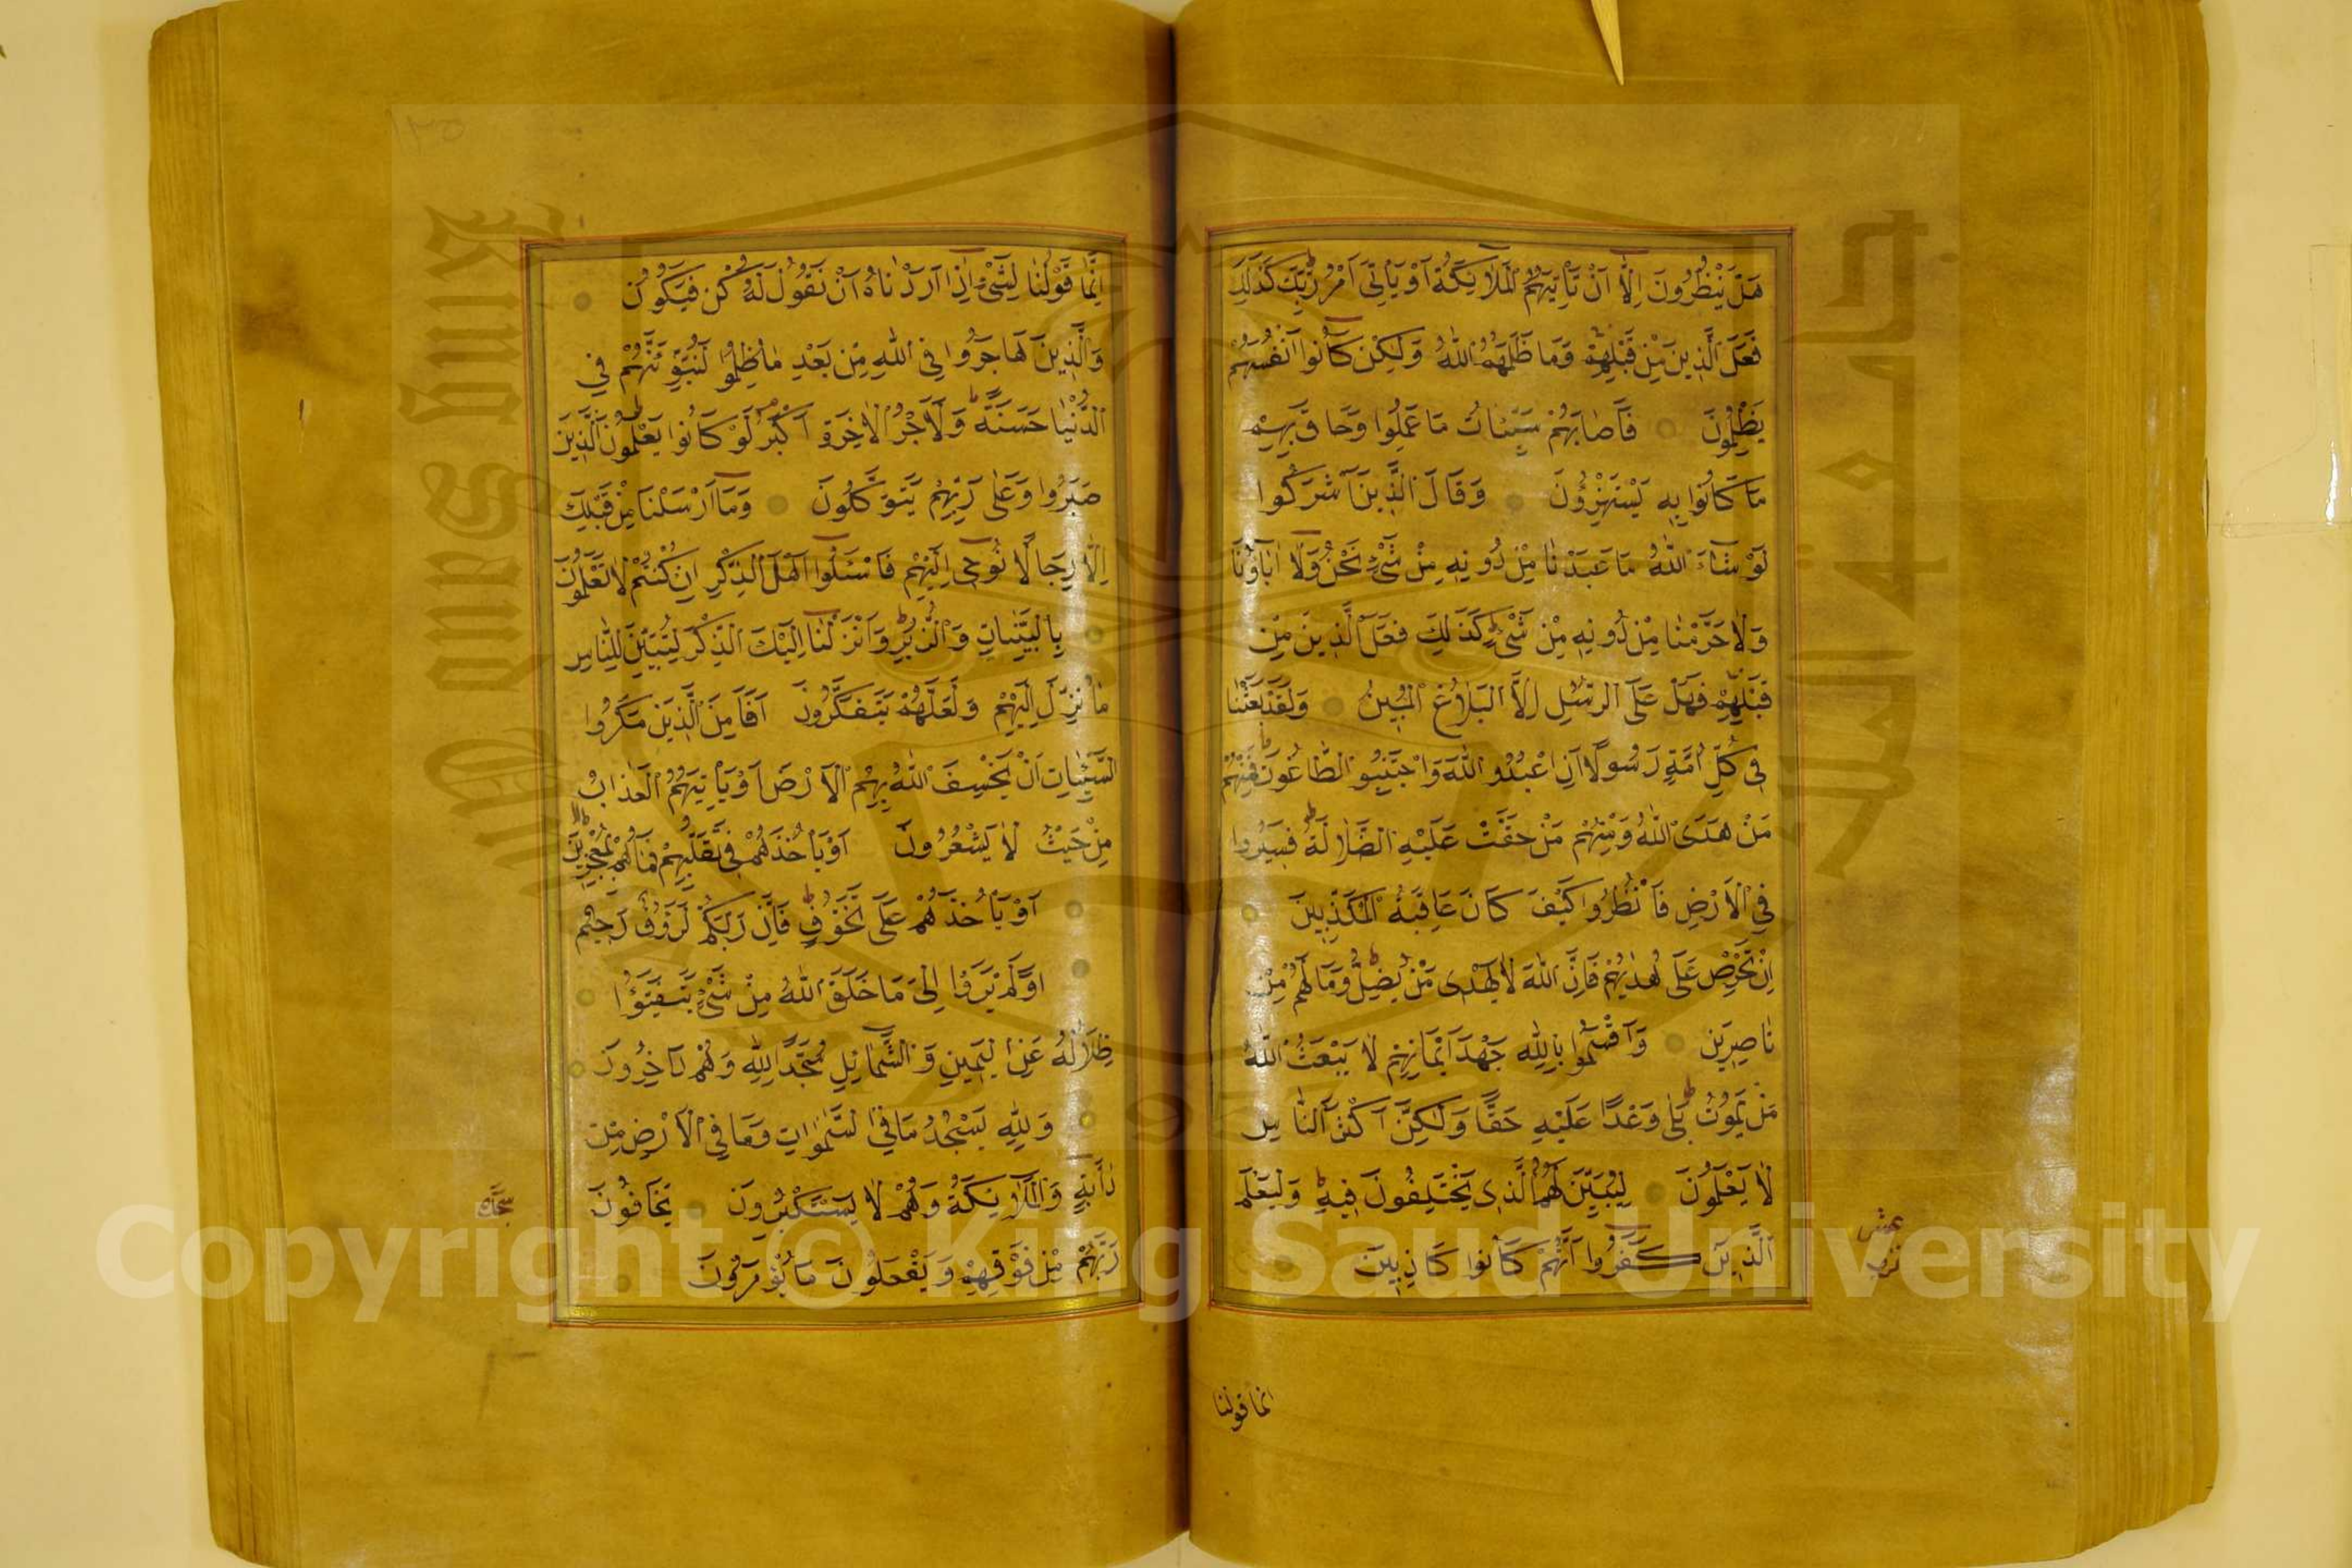 هَلْ يَنْظُرُونَ اِلَّا اَنْ تَاْتِيَهُمُ الْمَلَائِكَةُ اَوْ يَاْتِىَ اَمْرُ رَبِّكَ كَذَلِكَ
فَعَلَ الَّذِينَ مِنْ قَبْلِهِمْ وَمَا ظَلَمَهُمُ اللّٰهُ وَلَكِنْ كَانُوا اَنْفُسَهُمْ
يَظْلِمُونَ فَاَصَابَهُمْ سَيِّئَاتُ مَا عَمِلُوا وَحَاقَ بِهِمْ
مَا كَانُوا بِهِ يَسْتَهْزِؤُنَ وَقَالَ الَّذِينَ اَشْرَكُوا
لَوْ شَاءَ اللّٰهُ مَا عَبَدْنَا مِنْ دُونِهِ مِنْ شَىْءٍ نَحْنُ وَلَا اٰبَاؤُنَا
وَلَا حَرَّمْنَا مِنْ دُونِهِ مِنْ شَىْءٍ كَذَلِكَ فَعَلَ الَّذِينَ مِنْ
قَبْلِهِمْ فَهَلْ عَلَى الرُّسُلِ اِلَّا الْبَلَاغُ الْمُبِينُ وَلَقَدْ بَعَثْنَا
فِى كُلِّ اُمَّةٍ رَسُولًا اَنِ اعْبُدُوا اللّٰهَ وَاجْتَنِبُوا الطَّاغُوتَ فَمِنْهُمْ
مَنْ هَدَى اللّٰهُ وَمِنْهُمْ مَنْ حَقَّتْ عَلَيْهِ الضَّلَالَةُ فَسِيرُوا
فِى الْاَرْضِ فَانْظُرُوا كَيْفَ كَانَ عَاقِبَةُ الْمُكَذِّبِينَ
اِنْ تَحْرِصْ عَلَى هُدٰيهُمْ فَاِنَّ اللّٰهَ لَا يَهْدِى مَنْ يُضِلُّ وَمَا لَهُمْ مِنْ
نَاصِرِينَ وَاَقْسَمُوا بِاللّٰهِ جَهْدَ اَيْمَانِهِمْ لَا يَبْعَثُ اللّٰهُ
مَنْ يَمُوتُ بَلَى وَعْدًا عَلَيْهِ حَقًّا وَلَكِنَّ اَكْثَرَ النَّاسِ
لَا يَعْلَمُونَ لِيُبَيِّنَ لَهُمُ الَّذِى يَخْتَلِفُونَ فِيهِ وَلِيَعْلَمَ
الَّذِينَ كَفَرُوا اَنَّهُمْ كَانُوا كَاذِبِينَ
انما قولنا
اِنَّمَا قَوْلُنَا لِشَىْءٍ اِذَا اَرَدْنَاهُ اَنْ نَقُولَ لَهُ كُنْ فَيَكُونُ
وَالَّذِينَ هَاجَرُوا فِى اللّٰهِ مِنْ بَعْدِ مَا ظُلِمُوا لَنُبَوِّئَنَّهُمْ فِى
الدُّنْيَا حَسَنَةً وَلَاَجْرُ الْاٰخِرَةِ اَكْبَرُ لَوْ كَانُوا يَعْلَمُونَ الَّذِينَ
صَبَرُوا وَعَلَى رَبِّهِمْ يَتَوَكَّلُونَ وَمَا اَرْسَلْنَا مِنْ قَبْلِكَ
اِلَّا رِجَالًا نُوحِى اِلَيْهِمْ فَاسْئَلُوا اَهْلَ الذِّكْرِ اِنْ كُنْتُمْ لَا تَعْلَمُونَ
بِالْبَيِّنَاتِ وَالزُّبُرِ وَاَنْزَلْنَا اِلَيْكَ الذِّكْرَ لِتُبَيِّنَ لِلنَّاسِ
مَا نُزِّلَ اِلَيْهِمْ وَلَعَلَّهُمْ يَتَفَكَّرُونَ اَفَاَمِنَ الَّذِينَ مَكَرُوا
السَّيِّئَاتِ اَنْ يَخْسِفَ اللّٰهُ بِهِمُ الْاَرْضَ اَوْ يَاْتِيَهُمُ الْعَذَابُ
مِنْ حَيْثُ لَا يَشْعُرُونَ اَوْ يَاْخُذَهُمْ فِى تَقَلُّبِهِمْ فَمَا هُمْ بِمُعْجِزِينَ
اَوْ يَاْخُذَهُمْ عَلَى تَخَوُّفٍ فَاِنَّ رَبَّكُمْ لَرَؤُفٌ رَحِيمٌ
اَوَلَمْ يَرَوْا اِلَى مَا خَلَقَ اللّٰهُ مِنْ شَىْءٍ يَتَفَيَّؤُا
ظِلَالُهُ عَنِ الْيَمِينِ وَالشَّمَائِلِ سُجَّدًا لِلّٰهِ وَهُمْ دَاخِرُونَ
وَلِلّٰهِ يَسْجُدُ مَا فِى السَّمٰوَاتِ وَمَا فِى الْاَرْضِ مِنْ
دَابَّةٍ وَالْمَلَائِكَةُ وَهُمْ لَا يَسْتَكْبِرُونَ يَخَافُونَ
رَبَّهُمْ مِنْ فَوْقِهِمْ وَيَفْعَلُونَ مَا يُؤْمَرُونَ
سجدة
Copyright © King Saud University